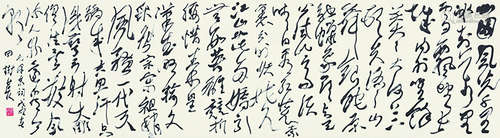 北国风光千里
冰封万里雪
飘望长
城内外惟余
莽莽大河上下
顿失滔滔山
舞银蛇原驰蜡
象欲与天公
试比高须
晴日看红装
素裹分外妖娆
江山如此多娇引
无数英雄竞折
腰惜秦皇
汉武略输文
采唐宗宋祖稍逊
风骚一代天
骄成吉思汗
只识弯弓射大雕
俱往矣数风
流人物还看今
朝